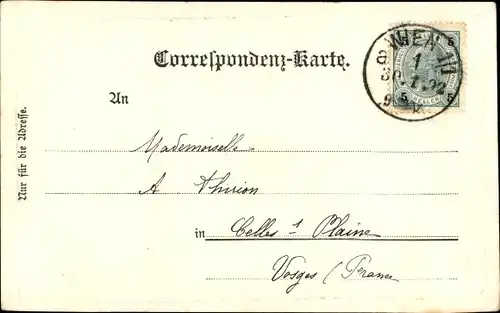 Correspondenz-Karte.
WIEN
5 5
HELLER
5 5
An
Nur für die Adresse.
Mademoiselle
A Thirion
in Celles s Plaine
Vosges (France